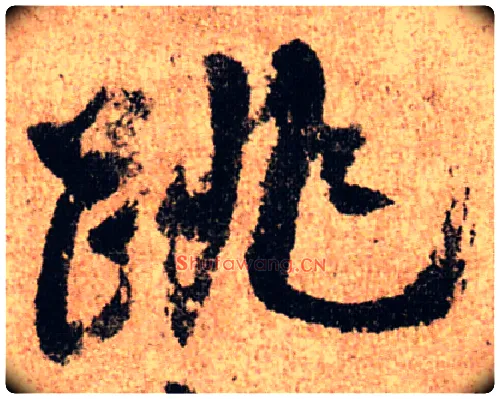 跳
ShufaWang.CN